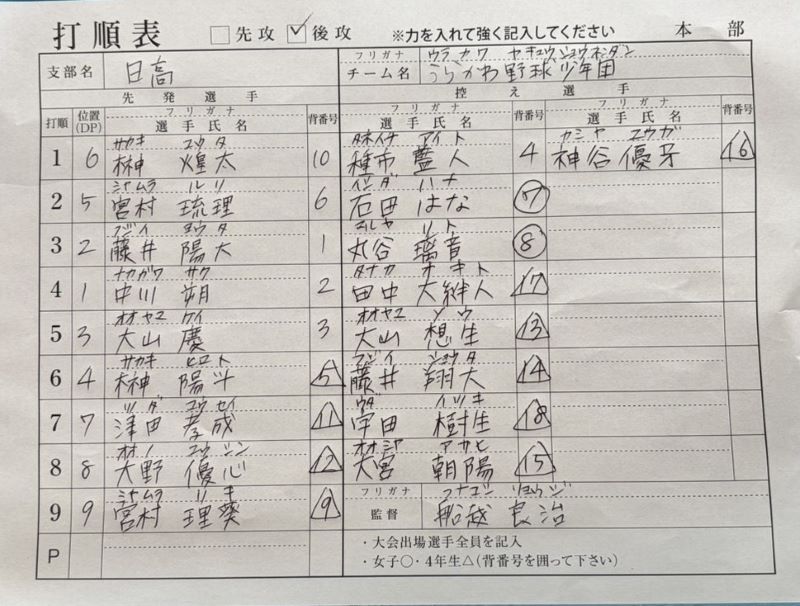 打順表 □先攻 ☑後攻 ※力を入れて強く記入してください 本部
フリガナ ウラカワ ヤキュウショウネンダン
支部名 日高 チーム名 うらかわ野球少年団
先発選手 控え選手
打順 位置(DP) フリガナ 選手氏名 背番号 フリガナ 選手氏名 背番号 フリガナ 選手氏名 背番号
サカキ コウタ タネイチ アイト カミヤ ユウガ
1 6 榊 煌太 10 種市 藍人 4 神谷 優牙 16
ミヤムラ ルリ イシダ ハナ
2 5 宮村 琉理 6 石田 はな 7
フジイ ヨウタ マルヤ リト
3 2 藤井 陽大 1 丸谷 璃音 8
ナカガワ サク タナカ オキト
4 1 中川 朔 2 田中 大絆人 17
オオヤマ ケイ オオヤマ ソウ
5 3 大山 慶 3 大山 想生 13
サカキ ヒロト フジイ ショウタ
6 4 榊 陽斗 5 藤井 翔大 14
ツダ コウセイ ウダ イツキ
7 7 津田 孝成 11 宇田 樹生 18
オオノ ユウシン オオミヤ アサヒ
8 8 大野 優心 12 大宮 朝陽 15
ミヤムラ リキ フリガナ フナコシ リョウジ
9 9 宮村 理葵 9 監督 船越 良治
P
・大会出場選手全員を記入
・女子○・4年生△(背番号を囲って下さい)